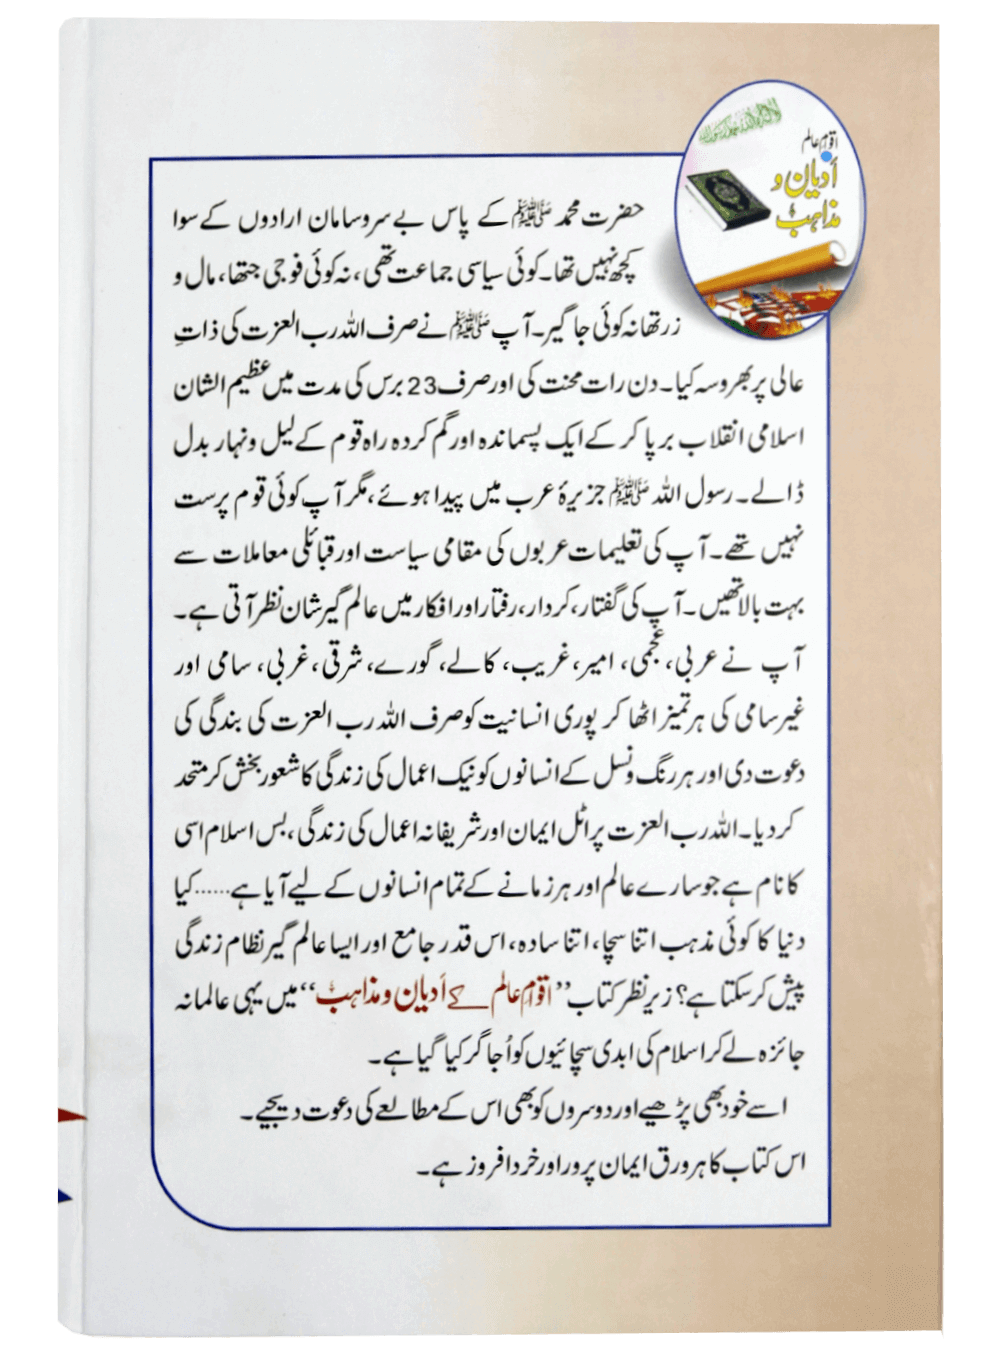 اقوامِ عالم
أدیان و
مذاہب
حضرت محمد ﷺ کے پاس بے سروسامان ارادوں کے سوا
کچھ نہیں تھا۔ کوئی سیاسی جماعت تھی، نہ کوئی فوجی جتھا، مال و
زر تھا نہ کوئی جاگیر۔ آپ ﷺ نے صرف اللہ رب العزت کی ذاتِ
عالی پر بھروسہ کیا۔ دن رات محنت کی اور صرف 23 برس کی مدت میں عظیم الشان
اسلامی انقلاب برپا کر کے ایک پسماندہ اور گم کردہ راہ قوم کے لیل و نہار بدل
ڈالے۔ رسول اللہ ﷺ جزیرۂ عرب میں پیدا ہوئے، مگر آپ کوئی قوم پرست
نہیں تھے۔ آپ کی تعلیمات عربوں کی مقامی سیاست اور قبائلی معاملات سے
بہت بالا تھیں۔ آپ کی گفتار، کردار، رفتار اور افکار میں عالم گیر شان نظر آتی ہے۔
آپ نے عربی، عجمی، امیر، غریب، کالے، گورے، شرقی، غربی، سامی اور
غیر سامی کی ہر تمیز اٹھا کر پوری انسانیت کو صرف اللہ رب العزت کی بندگی کی
دعوت دی اور ہر رنگ و نسل کے انسانوں کو نیک اعمال کی زندگی کا شعور بخش کر متحد
کر دیا۔ اللہ رب العزت پر اٹل ایمان اور شریفانہ اعمال کی زندگی، بس اسلام اسی
کا نام ہے جو سارے عالم اور ہر زمانے کے تمام انسانوں کے لیے آیا ہے...... کیا
دنیا کا کوئی مذہب اتنا سچا، اتنا سادہ، اس قدر جامع اور ایسا عالم گیر نظام زندگی
پیش کر سکتا ہے؟ زیر نظر کتاب ’’اقوامِ عالم کے أدیان و مذاہب‘‘ میں یہی عالمانہ
جائزہ لے کر اسلام کی ابدی سچائیوں کو اُجاگر کیا گیا ہے۔
اسے خود بھی پڑھیے اور دوسروں کو بھی اس کے مطالعے کی دعوت دیجیے۔
اس کتاب کا ہر ورق ایمان پرور اور خرد افروز ہے۔